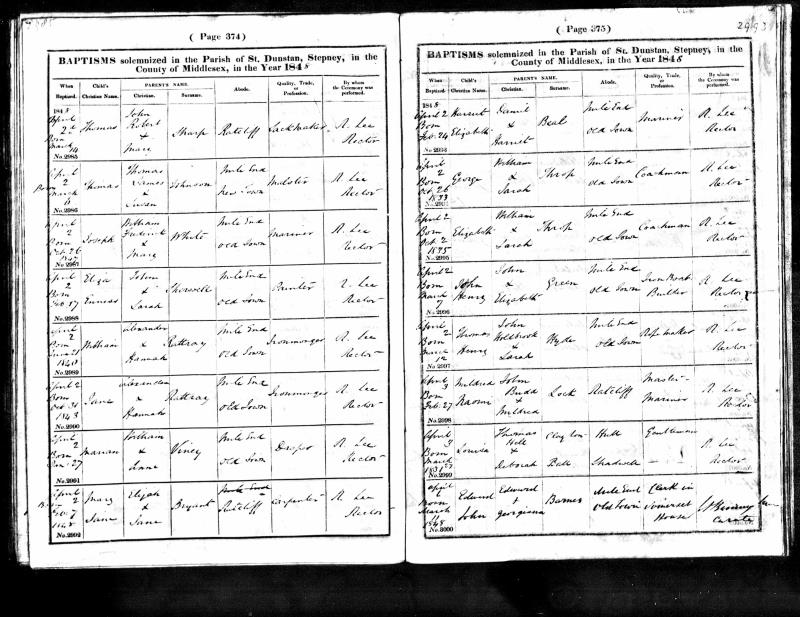 ( Page 374 )
BAPTISMS solemnized in the Parish of St. Dunstan, Stepney, in the
County of Middlesex, in the Year 1848
When Baptized. Child's Christian Name. PARENT'S NAME. Christian. Surname. Abode. Quality, Trade, or Profession. By whom the Ceremony was performed.
1848
April 2d Born March 14 Thomas John Robert & Mary Sharp Ratcliff A. Lee Rector
No. 2985
April 2 Born March Thomas Thomas James & Susan Johnson Mile End New Town A. Lee Rector
No. 2986
April 2 Born Oct. 26 1847 Joseph William Frederick & Mary White Mile End Old Town Mariner A. Lee Rector
No. 2987
April 2 Born Feb 17 Eliza John & Sarah Mile End Old Town Printer A. Lee Rector
No. 2988
April 2 Born 1840 William Alexander & Hannah Rattray Mile End Old Town Ironmonger A. Lee Rector
No. 2989
April 2 Born Oct. 31 1843 Jane Alexander & Hannah Rattray Mile End Old Town Ironmonger A. Lee Rector
No. 2990
April 2 Born 27 Marian William & Anne Viney Mile End Old Town Draper A. Lee Rector
No. 2991
April 2 Feb. 7 1848 Mary Jane Elijah & Jane Bryant Ratcliff Carpenter A. Lee Rector
No. 2992
( Page 375 )
BAPTISMS solemnized in the Parish of St. Dunstan, Stepney, in the
County of Middlesex, in the Year 1848
When Baptized. Child's Christian Name. PARENT'S NAME. Christian. Surname. Abode. Quality, Trade, or Profession. By whom the Ceremony was performed.
1848
April 2 Born Feb. 24 Harriet Elizabeth Daniel & Harriet Beal Mile End Old Town Mariner A. Lee Rector
No. 2993
April 2 Born Oct. 26 1833 George William & Sarah Throp Mile End Old Town Coachman A. Lee Rector
No. 2994
April 2 Born Oct. 2 1835 Elizabeth William & Sarah Throp Mile End Old Town Coachman A. Lee Rector
No. 2995
April 2 Born March 7 John Henry John & Elizabeth Green Mile End Old Town Iron Boat Builder A. Lee Rector
No. 2996
April 2 Born March 12 Thomas Henry John Holbrook & Sarah Hyde Mile End Old Town Rope maker A. Lee Rector
No. 2997
April 3 Born Feb. 27 Mildred Naomi John Budd & Mildred Lock Ratcliff Master Mariner A. Lee Rector
No. 2998
April Born March 1831 Louisa Thomas & Deborah Clayton Ball Shadwell Gentleman A. Lee Rector
No. 2999
April Born March 11 1848 Edward John Edward Georgiana Barnes Mile End Old Town Clerk in Somerset House Curate
No. 3000